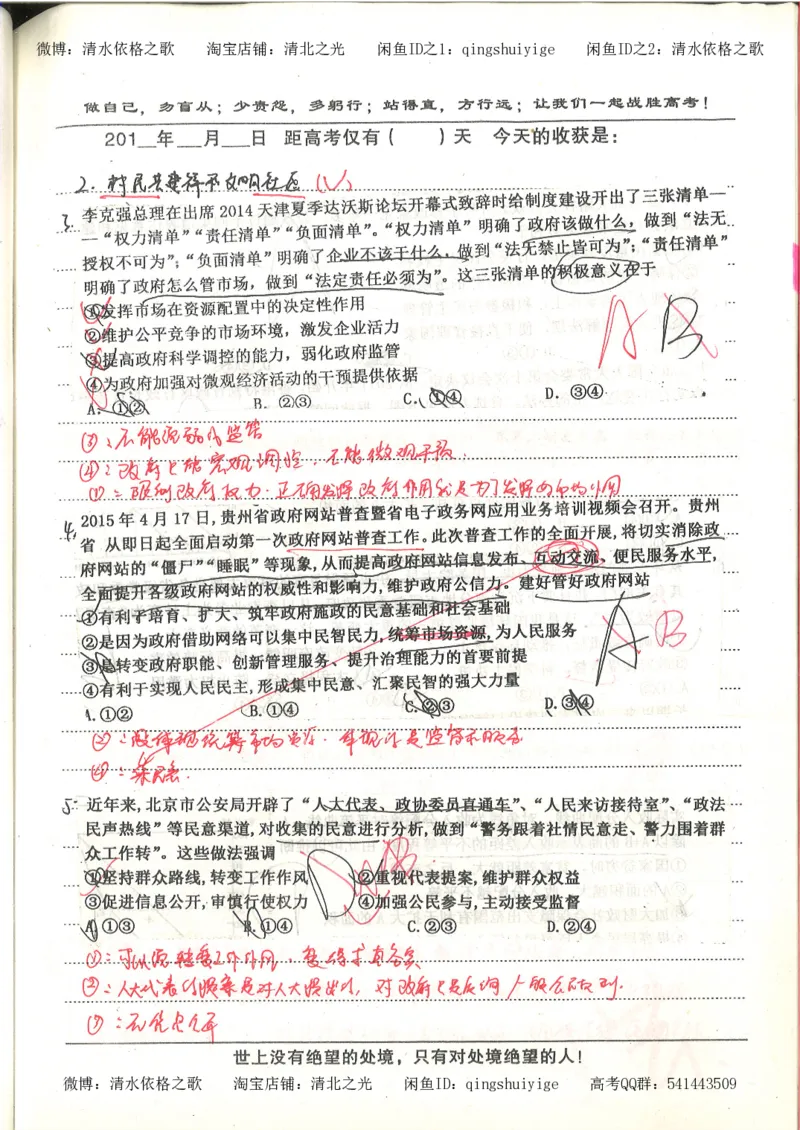 微博：清水依格之歌 淘宝店铺：清北之光 闲鱼ID之1：qingshuiyige 闲鱼ID之2：清水依格之歌
做自己，勿盲从；少责怨，多躬行；站得直，方行远；让我们一起战胜高考！
201__年___月___日 距高考仅有（ ）天 今天的收获是：
2. 村民共建祥和文明社区（√）
3. 李克强总理在出席 2014 天津夏季达沃斯论坛开幕式致辞时给制度建设开出了三张清单—
—“权力清单”“责任清单”“负面清单”。“权力清单”明确了政府该做什么，做到“法无
授权不可为”；“负面清单”明确了企业不该干什么，做到“法无禁止皆可为”；“责任清单”
明确了政府怎么管市场，做到“法定责任必须为”。这三张清单的积极意义在于
①发挥市场在资源配置中的决定性作用
②维护公平竞争的市场环境，激发企业活力
③提高政府科学调控的能力，弱化政府监管
④为政府加强对微观经济活动的干预提供依据
A. ①② B. ②③ C. ①④ D. ③④
A B
③：不能弱化监管
④：政府只能宏观调控，不能微观干预．
①：限制政府权力．正确发挥政府作用就是为了发挥市场作用
4. 2015 年 4 月 17 日，贵州省政府网站普查暨省电子政务网应用业务培训视频会召开。贵州
省 从即日起全面启动第一次政府网站普查工作。此次普查工作的全面开展，将切实消除政
府网站的“僵尸”“睡眠”等现象，从而提高政府网站信息发布、互动交流、便民服务水平，
全面提升各级政府网站的权威性和影响力，维护政府公信力。建好管好政府网站
①有利于培育、扩大、筑牢政府施政的民意基础和社会基础
②是因为政府借助网络可以集中民智民力，统筹市场资源，为人民服务
③是转变政府职能、创新管理服务、提升治理能力的首要前提
④有利于实现人民民主，形成集中民意、汇聚民智的强大力量
A. ①② B. ①④ C. ②③ D. ③④
A B
④：集民意．
5. 近年来，北京市公安局开辟了“人大代表、政协委员直通车”、“人民来访接待室”、“政法
民声热线”等民意渠道，对收集的民意进行分析，做到“警务跟着社情民意走、警力围着群
众工作转”。这些做法强调
①坚持群众路线，转变工作作风 ②重视代表提案，维护群众权益
③促进信息公开，审慎行使权力 ④加强公民参与，主动接受监督
A. ①③ B. ①④ C. ②③ D. ②④
D B
①：转变工作作风，
②：人大代表的提案是对人大提出的，对政府只是反映
世上没有绝望的处境，只有对处境绝望的人！
微博：清水依格之歌 淘宝店铺：清北之光 闲鱼ID：qingshuiyige 高考QQ群：541443509